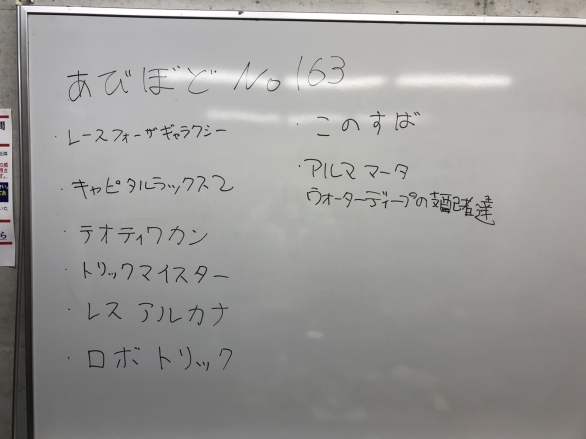 あびぼど No 163
・レースフォーザギャラクシー
・キャピタルラックス2
・テオティワカン
・トリックマイスター
・レス アルカナ
・ロボ トリック
・このすば
・アルマ マータ
ウォーターディープの支配者達